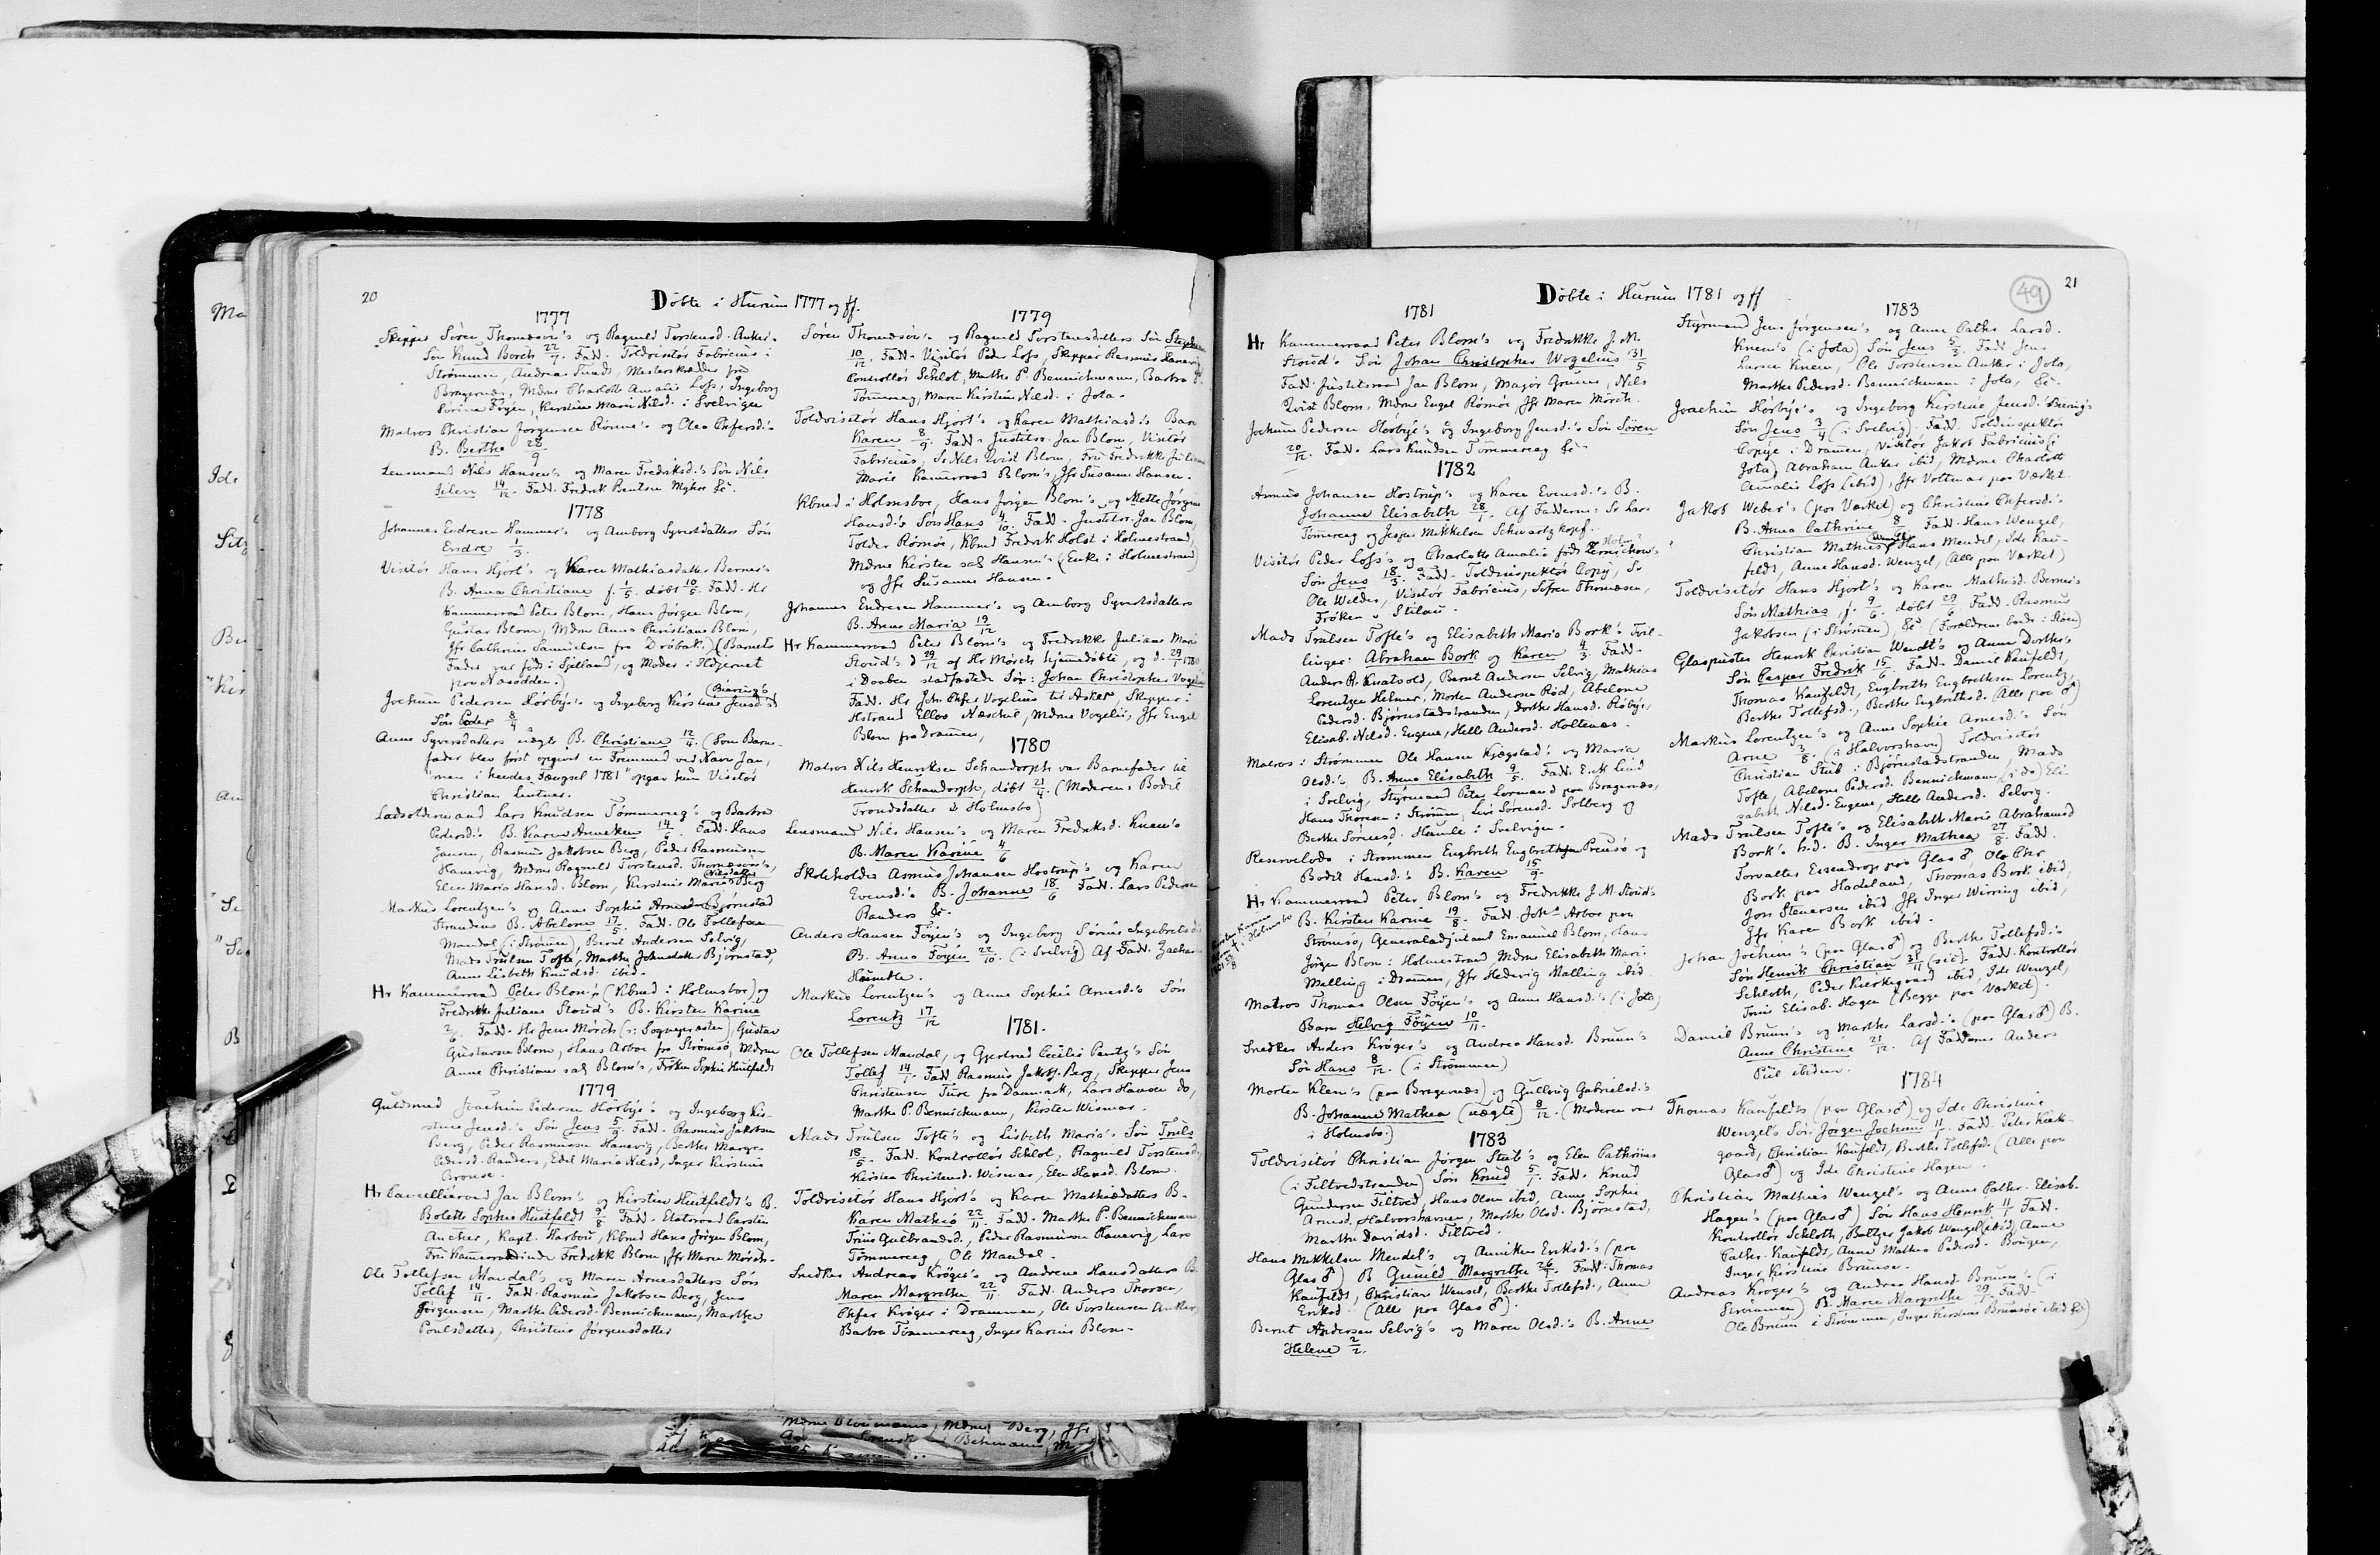 20
Døbte i Hurum 1777 og ff.
1777
Skipper Sören Thomæsön's og Ragnild Torstensd. Anker's
Sön Knud Borch 22/7. Fadd. Toldvisitör Fabricius i
Strömmen, Andreas Tund, Mesterskræder fra
Bragernæs, Mdme Charlotte Amalie Lofs, Ingeborg
Sörine Föyen, Kirstine Marie Nilsd. i Svelvigen
Matros Christian Jörgensen Rönne's og Olea Chfersd.'s
B. Berthe 28/9
Lensmand Nils Hansen's og Maren Fredriksd.'s Sön Nils
14/12. Fadd. Fredrik Bentsen Myhre &c.
1778
Johannes Endresen Hammer's og Amborg Syvertsdatters Sön
Endre 1/3.
Visitör Hans Hjort's og Karen Mathiasdatter Berner's
B. Anna Christiane f. 1/5. döbt 10/5. Fadd. Hr
Kammerraad Peter Blom, Hans Jörgen Blom,
Gustav Blom, Mdme Anna Christiane Blom,
Jfr Cathrine Samuelsen fra Dröbak.) (Barnets
Fader var föd i Sjelland, og Moder i Hidjernet
paa Næsodden.)
Jochum Pedersen Hörbye's og Ingeborg Kirstine Jensd.'s
Biering's
Sön Peder 8/4
Anne Syversdatters uægte B. Christiane 12/4. (Som Barne-
fader blev först opgivet en Fremmed ved Navn Jan,
men i hendes Fængsel 1781 opgav hun Visitör
Christian Lintner.
Ladsoldermand Lars Knudsen Tömmeraas's og Barbra
Pedersd.'s B. Karen Anneken 14/5. Fadd. Hans
Jansen, Rasmus Jakobsen Berg, Peder Rasmussen
Hanevig, Mdme Ragnild Torstensd. Thomæsön's,
Elen Maria Hansd. Blom, Kirstine Marie Berg
Nilsdatter
Markus Lorentzen's og Anne Sophie Arnesd. Bjornstad
Strandens B. Abelone 17/5. Fadd. Ole Tollefsen
Mandal (i Strömen), Bernt Andersen Selvig,
Mads Trulsen Tofte, Marthe Johnsdatter Björnstad,
Anne Lisbeth Knudsd. ibid.
Hr Kammerraad Peter Blom's (Kbmd i Holmsboe) og
Fredrikke Juliane Stoud's B. Kirsten Karine
2/6. Fadd. Hr Jens Mörch (o: Sognepresten) Gustav
Gustavsen Blom, Hans Arboe fra Strömsö, Mdme
Anne Christiane sal Blom's, Fröken Sophie Huitfeldt
1779
Guldsmed Joachim Pedersen Hörbye's og Ingeborg Kir-
stine Jensd.'s Sön Jens 5/9. Fadd. Rasmus Jakobsen
Berg, Peder Rasmussen Hanevig, Berthe Margr.
Pedersd. Randers, Edel Maria Nilsd, Inger Kirstine
Bronse.
Hr Cancelliraad Jan Blom's og Kirsten Huitfeldt's B.
Bolette Sophie Huitfeldt 9/8. Fadd. Etatsraad Carsten
Ancher, Kapt. Harboe, Kbmd Hans Jörgen Blom,
Fru Kamerraadinde Fredrikke Blom, Jfr Maren Mörch.
Ole Tollefsen Mandal's og Maren Arnesdatters Sön
Tollef 14/11. Fadd. Rasmus Jakobsen Berg, Jens
Jörgensen, Marthe Pedersd. Bennichmann, Marthe
Poulsdatter, Christine Jörgensdatter
1779
Sören Thomæsön's og Ragnild Torstensdatters Sön
10/12. Fadd. Visitör Peder Lofs, Skipper Rasmus Hanevig
Controllör Schlot, Marthe P. Bennichmann, Barbra P.
Tömmeraas, Maren Kirstine Nilsd. i Jota.
Toldvisitör Hans Hjort's og Karen Mathiasd.'s Barn
Karen 8/9. Fadd. Justitsr. Jan Blom, Visitör
Fabricius, Sr Nils Qvist Blom, Fru Fredrikke Juliane
Marie Kammerraad Blom's, Jfr Susanne Hansen.
Kbmd i Holmsboe, Hans Jörgen Blom's og Mette Jörgine
Hansd.'s Sön Hans 4/10. Fadd. Justitsr. Jan Blom,
Tolder Römöe, Kbmd Fredrik Holst i Holmestrand,
Mdme Kirsten sal Hansen's (Enke i Holmestrand)
og Jfr Susanne Hansen.
Johannes Endresen Hammer's og Amborg Syvertsdatters
B. Anne Maria 19/12
Hr Kammerraad Peter Blom's og Fredrikke Juliane Marie
Stoud's d. 29/12 af Hr Mörch hjemmedöbte, og d. 29/1 1780
i Daaben stadfæstede Sön: Johan Christopher
Fadd. Hr Joh Chfer Vogelius til Asker, Skipper i
Hstrand Ellos Næschel, Mdme Vogelii, Jfr Engel
Blom fra Drammen,
1780
Matros Nils Henriksen Schandorph var Barnefader til
Henrik Schandorph, döbt 21/4. (Moderen: Bodil
Trondsdatter i Holmsbo)
Lensmand Nils Hansen's og Maren Fredriksd. Knem's
B. Maren Karine 4/6
Skoleholder Asmus Johansen Hostrup's og Karen
Evensd.'s B. Johanne 18/6. Fadd. Lars Pedersen
Randers &c.
Anders Hansen Föyen's og Ingeborg Sörine Ingebretsd.
B. Anne Föyen 22/10. (i Svelvig) Af Fadd. Zacharias
Markus Lorentzen's og Anne Sophie Arnesd.'s Sön
Lorentz 17/12
1781.
Ole Tollefsen Mandal, og Gjertrud Cecilie Pentz's Sön
Tollef 14/1. Fadd. Rasmus Jakobs. Berg, Skipper Jens
Christensen Ture fra Danmark, Lars Hansen do,
Marthe P. Bennichmann, Kirsten Wismar.
Mads Trulsen Tofte's og Lisbeth Maria's Sön Truls
18/5. Fadd. Kontrollör Schlot, Ragnild Torstensd,
Kirsten Christensd. Wismar, Elen Hansd. Blom.
Toldvisitör Hans Hjort's og Karen Mathiasdatters B.
Karen Mathea 22/11. Fadd. Marthe P. Bennichmann
Trine Gulbrandsd., Peder Rasmussen Hanevig, Lars
Tömmeraas, Ole Mandal.
Snedker Andreas Kröger's og Andrene Hansdatters B.
Maren Margrethe 22/11. Fadd. Anders Thorsen,
Chfer Kröger i Drammen, Ole Torstensen Anker,
Barbra Tömmeraas, Inger Karine Blom.
21
49
Døbte i Hurum 1781 og ff
1781
Hr Kammerraad Peter Blom's og Fredrikke J. M.
Stoud's Sön Johan Christopher Wogelius 31/5
Fadd. Justitsraad Jan Blom, Major Gruner, Nils
Qvist Blom, Mdme Engel Römöe, Jfr Maren Mörch.
Jochum Pedersen Hörbye's og Ingeborg Jensd.'s Sön Sören
20/12. Fadd. Lars Knudsen Tömmeraas &c.
1782
Asmus Johansen Hostrup's og Karen Evensd.'s B.
Johanne Elisabeth 28/1. Af Fadderne: Sr Lars
Tömmeraas og Jesper Mikkelsen Schwartzkopf.
Visitör Peder Lofs's og Charlotte Amalie föd Lemichow's
Holm?
Sön Jens 18/3. Fadd. Toldinspektör Copÿ, Sr
Ole Wilder, Visitör Fabricius, Sören Thomæsen,
Fröken v Stilau.
Mads Trulsen Tofte's og Elisabeth Maria Bork's Tvil-
linger: Abraham Bork og Karen 4/3. Fadd.
Anders R. Knatvold, Bernt Andersen Selvig, Mathias
Lorentzen Helmer, Morten Andersen Röd, Abelone
Pedersd. Björnstadstranden, Dorthe Hansd. Röbye,
Elisab. Nilsd. Eugene, Helle Andersd. Holtenæs.
Matros i Strömmen Ole Hansen Kjægstad's og Maria
Olsd.'s B. Anne Elisabeth 9/5. Fadd. Erik Lind
i Svelvig, Styrmand Peter Lormand paa Bragernæs,
Hans Thoresen i Strömm, Liv Sörensd. Solberg og
Berthe Sörensd. Humle i Svelvigen.
Reservelods i Strömmen Engbreth Engbrethsen Preusö og
Bodil Hansd.'s B. Karen 15/9.
Hr Kammerraad Peter Blom's og Fredrikke J. M. Stoud's
B. Kirsten Karine 19/8. Fadd. Joh. Arboe paa
Strömsö, Generaladjutant Emanuel Blom, Hans
Jörgen Blom i Holmestrand, Mdme Elisabeth Marie
Malling i Dramen, Jfr Hedevig Malling ibid
Matros Thomas Olsen Föyen's og Anne Hansd.'s (i Jota)
Barn Helvig Föyen 10/11.
Snedker Anders Kröger's og Andrea Hansd. Bruun's
Sön Hans 8/12. (i Strömmen)
Morten Klem's (paa Bragernæs) og Gullovig Gabrielsd.'s
B. Johanne Mathea (uægte) 8/12. (Moderen var
i Holmsbo.)
1783
Toldvisitör Christian Jörgen Stub's og Elen Cathrines
(i Filtvedstranden) Sön Knud 5/1. Fadd. Knud
Gundersen Filtved, Hans Olsen ibid, Anne Sophie
Arnesd, Halvorshavnen, Marthe Olsd. Björnstad,
Marthe Davidsd. Filtved.
Hans Mikkelsen Mendel's og Anniken Eriksd.'s (paa
Glas♂) B. Gunild Margrethe 26/1. Fadd. Thomas
Kaufeldt, Christian Wensel, Berthe Tollefsd., Anne
Eriksd. (Alle paa Glas♂).
Bernt Andersen Selvig's og Maren Olsd.'s B. Anne
Helene 2/2.
1783
Styrmand Jens Jörgensen's og Anne Cathr. Larsd.
Knem's (i Jota) Sön Jens 5/3. Fadd Jens
Larsen Knem, Ole Torstensen Anker i Jota,
Marthe Pedersd. Bennichmann i Jota, &c.
Joachim Hörbye's og Ingeborg Kirstine Jensd. Biering's
Sön Jens 3/4 (i Svelvig). Fadd. Toldinspektör
Copÿe i Dramen, Visitör Jakob Fabricius (i
Jota) Abraham Anker ibid, Mdme Charlotte
Amalie Lofs (ibid), Jfr Voltmar paa Værket.
Jakob Weber's (paa Værket) og Christine Chfersd.'s
B. Anna Cathrine 8/6. Fadd. Hans Wenzel,
Christian Mathies Hans Mendel, Ide Kau-
Wenzel
feldt, Anne Hansd. Wenzel, (Alle paa Værket)
Toldvisitör Hans Hjort's og Karen Mathisd. Berner's
Sön Mathias, f. 9/6. döbt 29/6. Fadd. Rasmus
Jakobsen (i Strömen) &c. (Forældrene boede i Stöen)
Glaspuster Henrik Christian Wendt's og Anne Dorthe's
Sön Casper Fredrik 15/6. Fadd. Daniel Kaufeldt,
Thomas Kaufeldt, Engbreth Engbrethsen Lorentz,
Berthe Tollefsd., Berthe Engbrethsd. (Alle paa ♂)
Markus Lorentzen's og Anne Sophie Arnesd.'s Sön
Arne 3/8. (i Halvorshavn) Toldvisitör
Christian Stub i Björnstadstranden, Mads
Tofte, Abelone Pedersd. Bennichmann, (i do) Eli-
sabeth Nilsd. Eugene, Helle Andersd. Selvig.
Mads Trulsen Tofte's og Elisabeth Maria Abrahamsd
Bork's h.d. B. Inger Mathea 27/8. Fadd.
Forvalter Essendrop paa Glas♂ Ole Chr.
Bork paa Hadeland, Thomas Bork ibid,
Jon Stenersen ibid, Jfr Inger Wirring ibid,
Jfr Karen Bork ibid.
Johan Jochim's (paa Glas♂) og Berthe Tollefsd.'s
Sön Henrik Christian 31/11 (sic). Fadd. Kontrollör
Schloth, Peder Kierkegaard ibid, Ide Wenzel,
Trine Elisab. Hagen (Begge paa Værket).
Daniel Bruun's og Marthe Larsd.'s (paa Glas♂) B.
Anne Christine 21/12. Af Fadderne Anders
Piil ibidem.
1784
Thomas Kaufeldts (paa Glas♂) og Ide Christine
Wenzel's Sön Jörgen Jochum 11/1. Fadd. Peter Kierke-
gaard, Christian Kaufeldt, Berthe Tollefsd. (Alle paa
Glas♂) og Ide Christine Hagen.
Christian Mathies Wenzel's og Anne Cathr. Elisab.
Hagen's (paa Glas♂) Sön Hans Henrik 11/1. Fadd.
Kontrollör Schloth, Baltzer Jakob Wenzel (ibid), Anne
Cathr. Kaufeldt, Anne Mathea Pedersd. Bougen,
Inger Kirstine Brunse.
Andreas Kröger's og Andrea Hansd. Bruun's (i
Strömmen) B. Maren Margrethe 29/1. Fadd.
Ole Bruun i Strömmen, Inger Kirstine Brunsöe ibid &c)